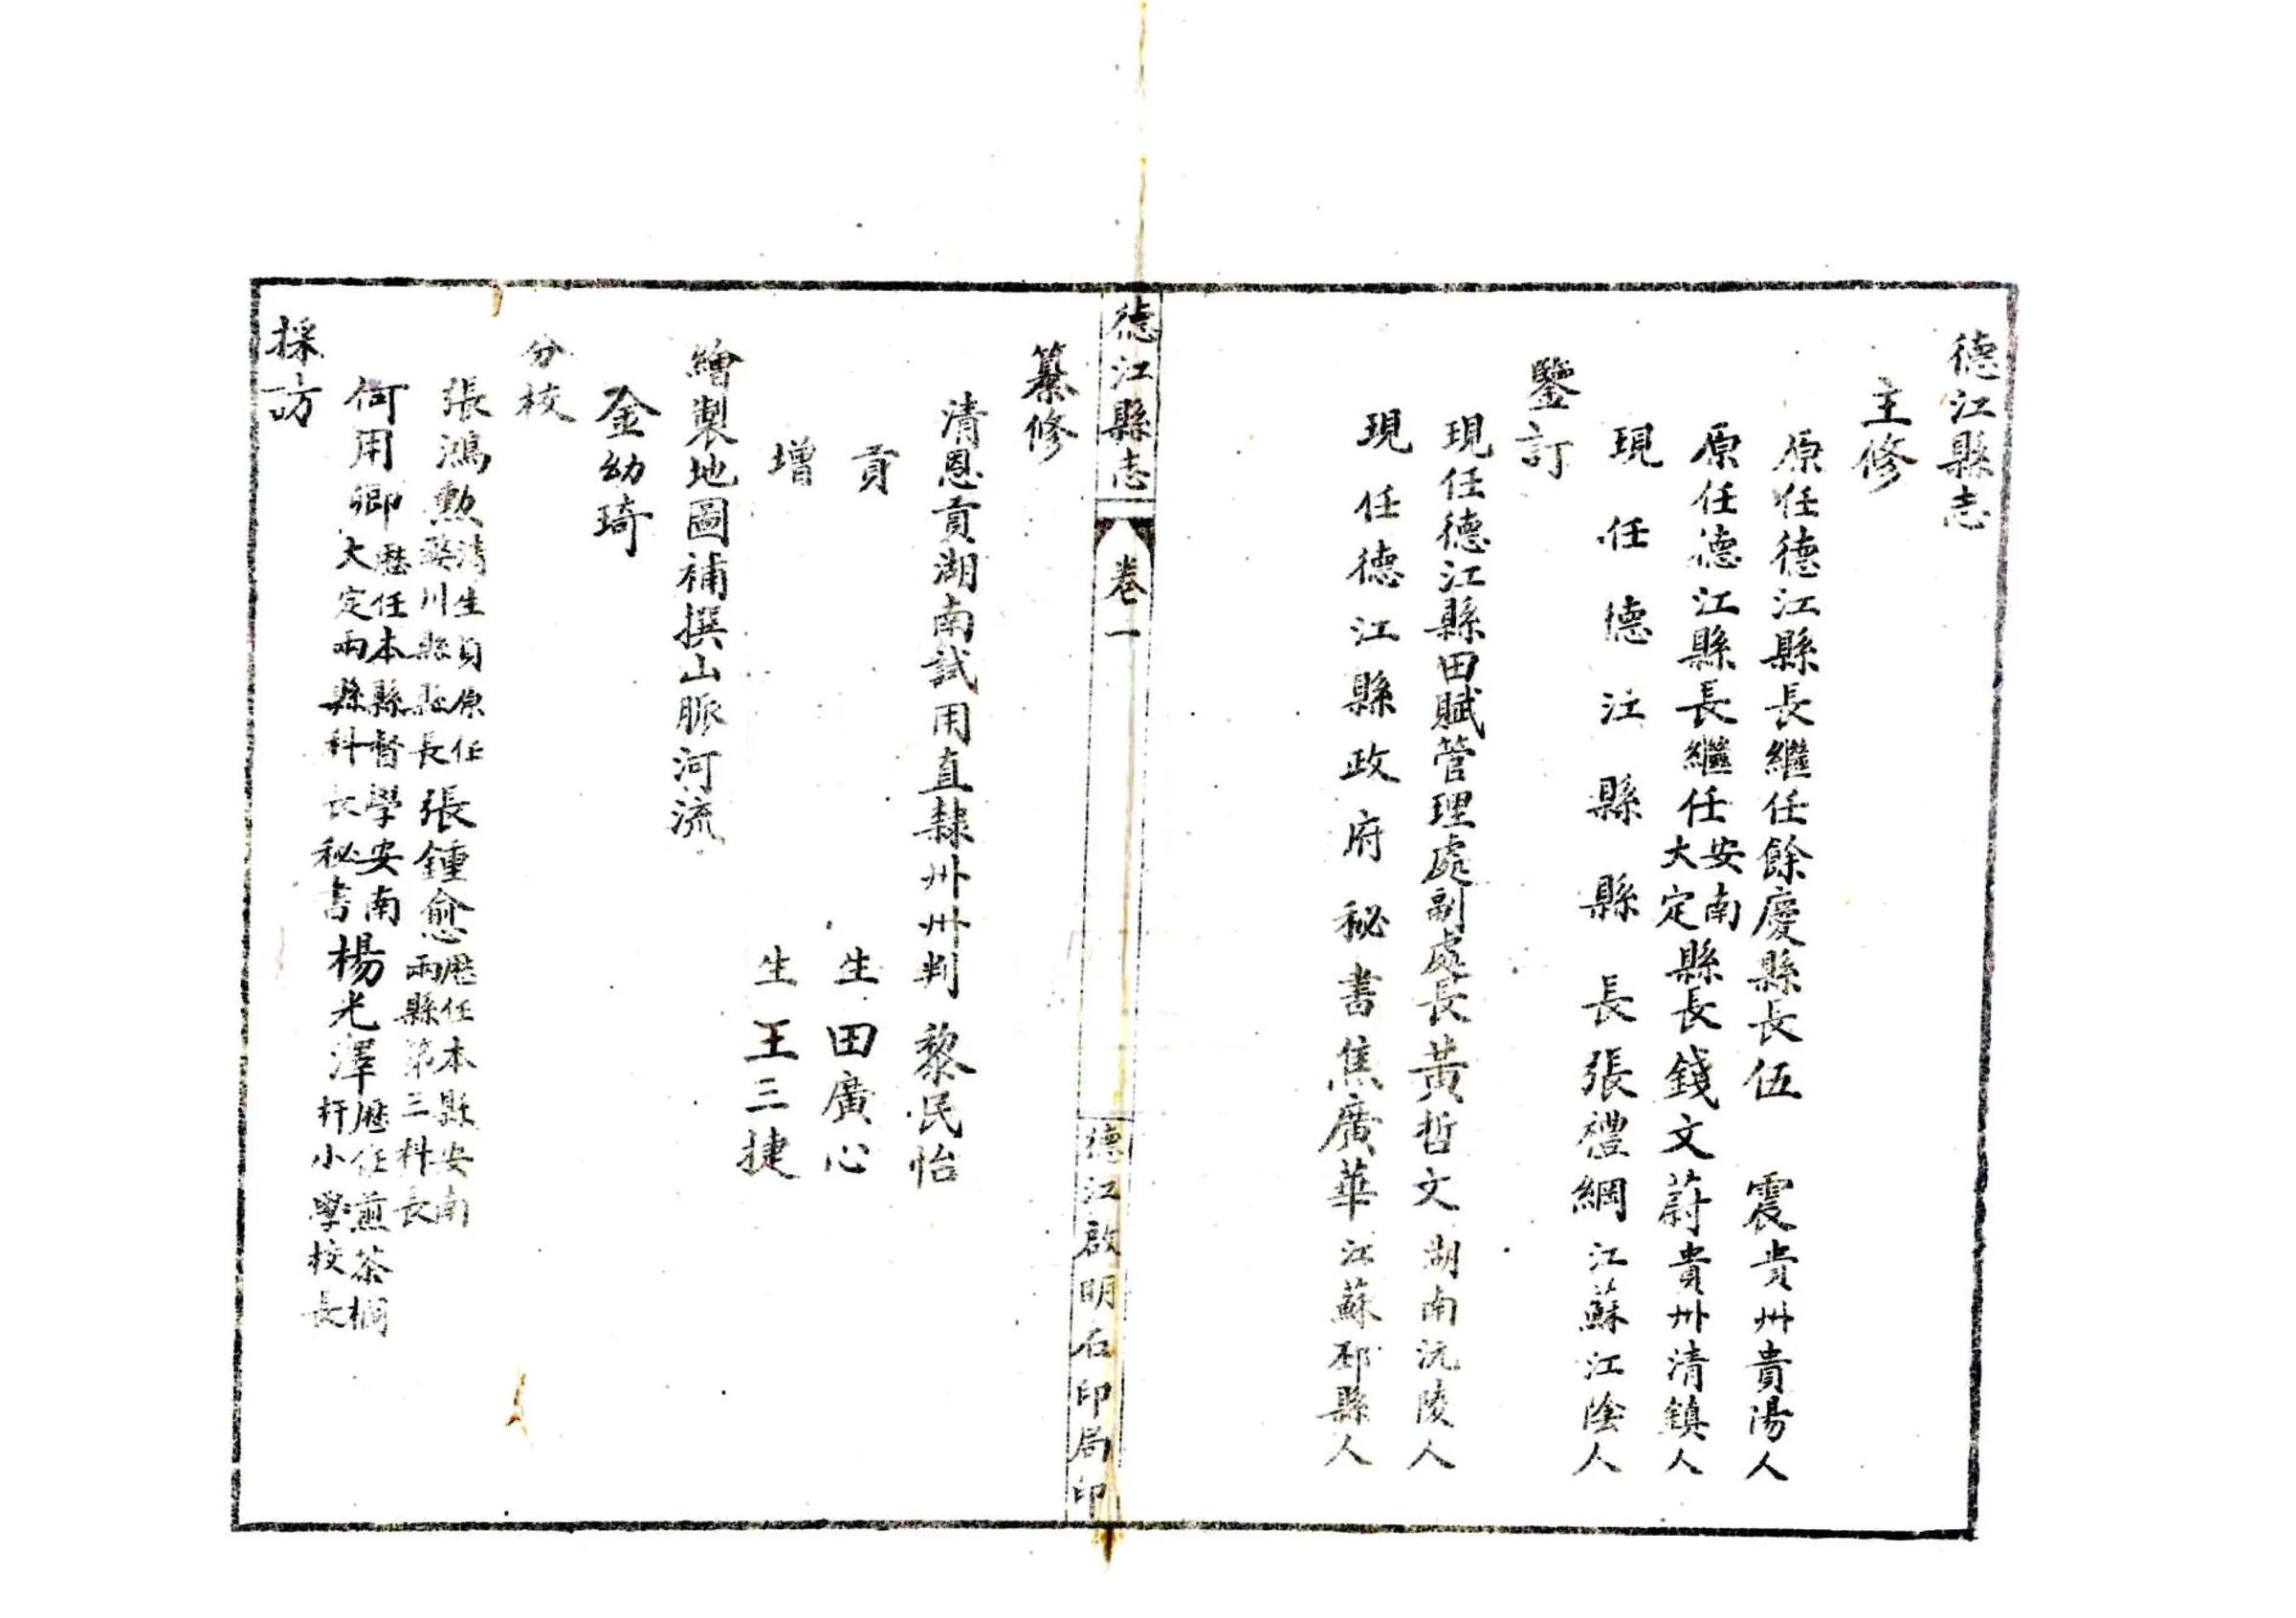 德江縣志
主修
原任德江縣長繼任餘慶縣長伍　震貴州貴陽人
原任德江縣長繼任安南大定縣長錢文蔚貴州清鎮人
現任德江縣縣長張禮綱江蘇江陰人
鑒訂
現任德江縣田賦管理處副處長黃哲文湖南沅陵人
現任德江縣政府秘書焦廣華江蘇邳縣人
德江縣志　卷一　德江啟明石印局印
纂修
清恩貢湖南試用直隸州州判黎民怡
貢生田廣心
增生王三捷
繪製地圖補撰山脈河流
金幼琦
分校
張鴻勲清生員原任婺川縣縣長張鍾愈歷任本縣安南兩縣第三科長
何用卿歷任本縣督學安南大定兩縣科長秘書楊光澤歷任煎茶小學校長
採訪